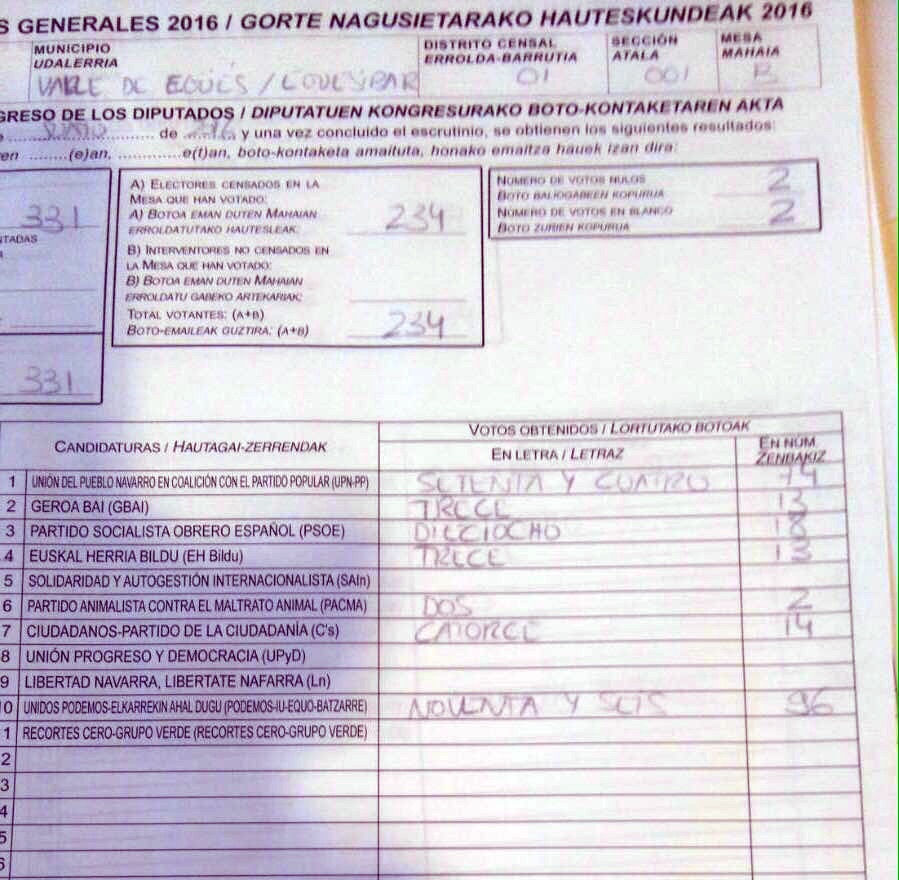 S GENERALES 2016 / GORTE NAGUSIETARAKO HAUTESKUNDEAK 2016
MUNICIPIO
UDALERRIA
VALLE DE EGÜÉS /
DISTRITO CENSAL
ERROLDA-BARRUTIA
01
SECCIÓN
ATALA
001
MESA
MAHAIA
B
GRESO DE LOS DIPUTADOS / DIPUTATUEN KONGRESURAKO BOTO-KONTAKETAREN AKTA
de y una vez concluido el escrutinio, se obtienen los siguientes resultados:
ren ........(e)an, ..............e(t)an, boto-kontaketa amaituta, honako emaitza hauek izan dira:
331
NTADAS
331
A) ELECTORES CENSADOS EN LA
MESA QUE HAN VOTADO:
A) BOTOA EMAN DUTEN MAHAIAN
ERROLDATUTAKO HAUTESLEAK: 234
B) INTERVENTORES NO CENSADOS EN
LA MESA QUE HAN VOTADO:
B) BOTOA EMAN DUTEN MAHAIAN
ERROLDATU GABEKO ARTEKARIAK:
TOTAL VOTANTES: (A+B)
BOTO-EMAILEAK GUZTIRA: (A+B) 234
NÚMERO DE VOTOS NULOS 2
BOTO BALIOGABEEN KOPURUA
NÚMERO DE VOTOS EN BLANCO 2
BOTO ZURIEN KOPURUA
CANDIDATURAS / HAUTAGAI-ZERRENDAK
VOTOS OBTENIDOS / LORTUTAKO BOTOAK
EN LETRA / LETRAZ
EN NÚM
ZENBAKIZ
1 UNIÓN DEL PUEBLO NAVARRO EN COALICIÓN CON EL PARTIDO POPULAR (UPN-PP) SETENTA Y CUATRO 74
2 GEROA BAI (GBAI) TRECE 13
3 PARTIDO SOCIALISTA OBRERO ESPAÑOL (PSOE) DIECIOCHO 18
4 EUSKAL HERRIA BILDU (EH Bildu) TRECE 13
5 SOLIDARIDAD Y AUTOGESTIÓN INTERNACIONALISTA (SAIn)
6 PARTIDO ANIMALISTA CONTRA EL MALTRATO ANIMAL (PACMA) DOS 2
7 CIUDADANOS-PARTIDO DE LA CIUDADANÍA (C's) CATORCE 14
8 UNIÓN PROGRESO Y DEMOCRACIA (UPyD)
9 LIBERTAD NAVARRA, LIBERTATE NAFARRA (Ln)
10 UNIDOS PODEMOS-ELKARREKIN AHAL DUGU (PODEMOS-IU-EQUO-BATZARRE) NOVENTA Y SEIS 96
1 RECORTES CERO-GRUPO VERDE (RECORTES CERO-GRUPO VERDE)
2
3
4
5
6